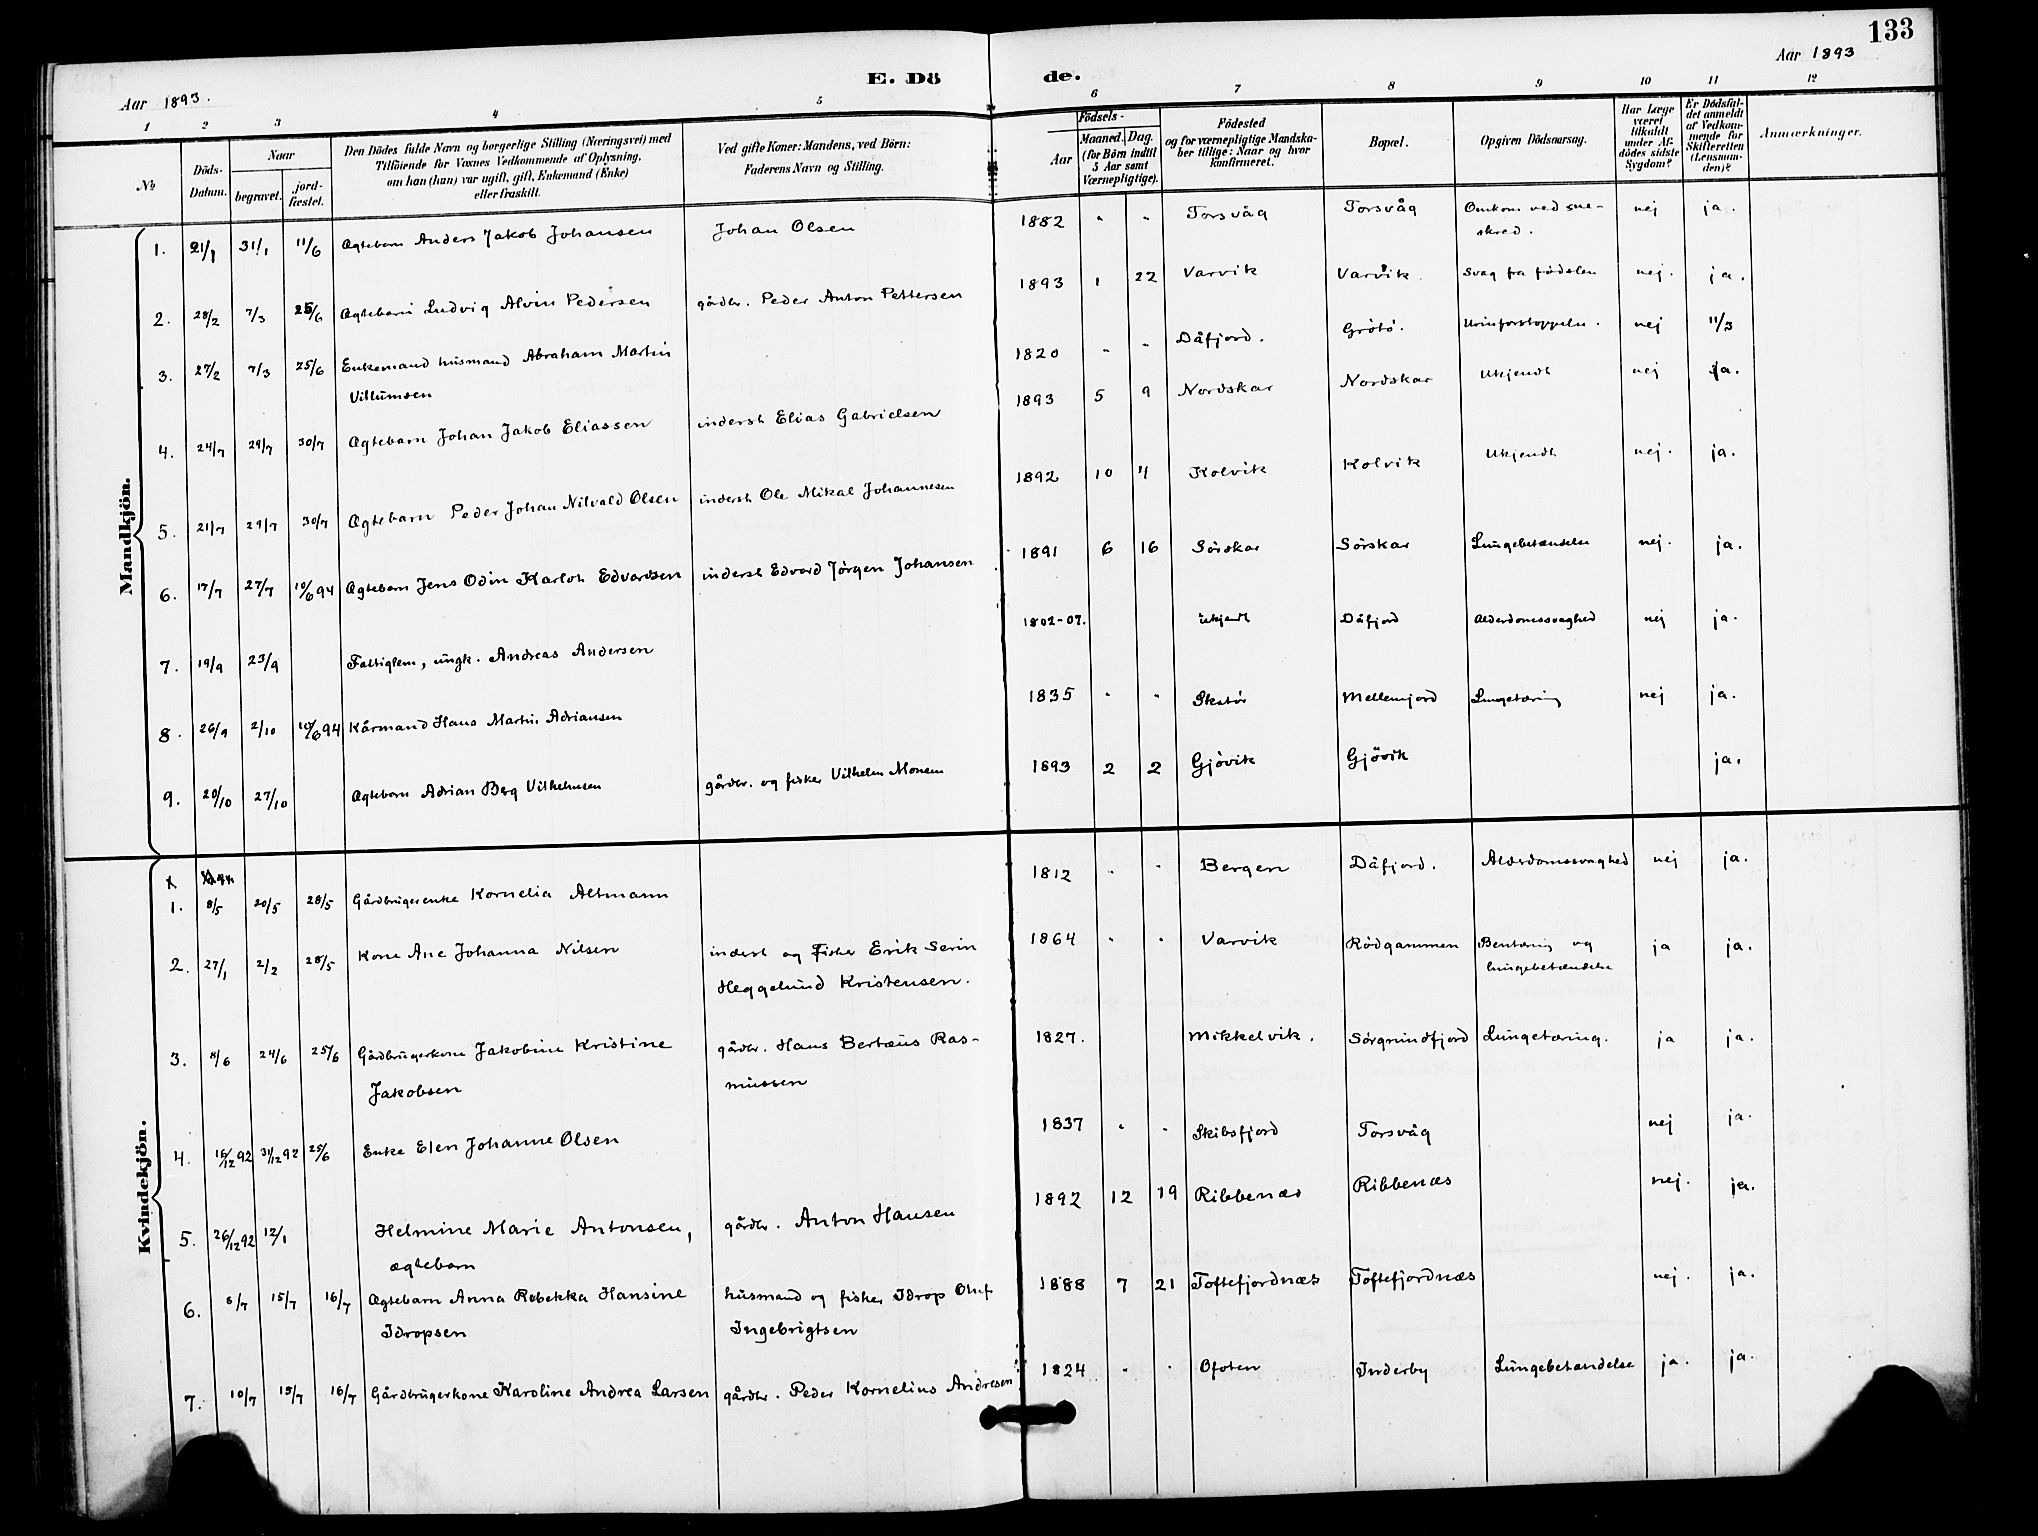 133
Aar 1893.
E. Dö de.
Aar 1893
1 2 3 4 5 6 7 8 9 10 11 12
No
Döds-Datum.
Naar
begravet.
jord-fæstet.
Den Dödes fulde Navn og borgerlige Stilling (Næringsvei) med
Tilföiende for Voxnes Vedkommende af Oplysning,
om han (hun) var ugift, gift, Enkemand (Enke)
eller fraskilt.
Ved gifte Koner: Mandens, ved Börn:
Faderens Navn og Stilling.
Födsels-
Aar
Maaned. Dag.
(for Börn indtil
5 Aar samt
Værnepligtige).
Födested
og for værnepligtige Mandska-
ber tillige: Naar og hvor
konfirmeret.
Bopæl.
Opgiven Dödsaarsag.
Har Læge
været
tilkaldt
under Af-
dödes sidste
Sygdom?
Er Dödsfal-
det anmeldt
af Vedkom-
mende for
Skifteretten
(Lensman-
den)?
Anmærkninger.
Mandkjön.
1. 21/1 31/1 11/6 Ægtebarn Anders Jakob Johansen Johan Olsen 1882 " " Torsvåg Torsvåg Omkom ved sne-
skred. nej ja.
2. 28/2 7/3 25/6 Ægtebarn Ludvig Alvin Pedersen gårdbr. Peder Anton Pettersen 1893 1 22 Varvik Varvik Svag fra födslen nej. ja.
3. 27/2 7/3 25/6 Enkemand husmand Abraham Martin
Villumsen 1820 " " Dåfjord. Grötö. Urinforstoppelse. nej 11/3
4. 24/7 29/7 30/7 Ægtebarn Johan Jakob Eliassen inderst Elias Gabrielsen 1893 5 9 Nordskar Nordskar Ukjendt nej ja.
5. 21/7 29/7 30/7 Ægtebarn Peder Johan Nilvald Olsen inderst Ole Mikal Johannesen 1892 10 4 Kolvik Kolvik Ukjendt nej. ja.
6. 17/7 27/7 10/6 94 Ægtebarn Jens Odin Karloh Edvardsen inderst Edvard Jörgen Johansen 1891 6 16 Sörskar Sörskar Lungebetændelse nej. ja.
7. 19/9 23/9 Fattiglem, ungk. Andreas Andersen 1802-07. ukjendt Dåfjord Alderdomssvaghed nej ja.
8. 26/9 2/10 10/6 94 Kårmand Hans Martin Adriansen 1835 " " Mellemjord Lungetæring nej ja.
9. 20/10 27/10 Ægtebarn Adrian Berg Vilhelmsen gårdbr. og fisker Vilhelm Monsen 1893 2 2 Gjövik Gjövik ja.
Kvindekjön.
1. 8/5 20/5 28/5 Gårdbrugerenke Kornelia Altmann 1812 " " Bergen Dåfjord. Alderdomssvaghed nej ja.
2. 27/1 2/2 28/5 Kone Ane Johanna Nilsen inderst og Fisker Erik Serin
Heggelund Kristensen. 1864 " " Varvik Rödgammen Bentæring og
lungebetændelse ja ja.
3. 8/6 24/6 25/6 Gårdbrugerkone Jakobine Kristine
Jakobsen gårdbr. Hans Bertæus Ras-
mussen 1827. Mikkelvik. Sörgrundfjord Lungetæring. ja ja.
4. 16/12 92 31/12 92 25/6 Enke Elen Johanne Olsen 1837 " " Skibsfjord Torsvåg nej ja.
5. 26/12 92 12/1 Helmine Marie Antonsen,
ægtebarn gårdbr. Anton Hansen 1892 12 19 Ribbenæs Ribbenæs nej. ja.
6. 8/7 15/7 16/7 Ægtebarn Anna Rebekka Hansine
Idropsen husmand og fisker Idrop Oluf
Ingebrigtsen 1888 7 21 Toftefjordnæs Toftefjordnæs nej. ja.
7. 10/7 15/7 16/7 Gårdbrugerkone Karoline Andrea Larsen gårdbr. Peder Kornelius Andresen 1824 " " Ofoten Inderby Lungebetændelse ja. ja.